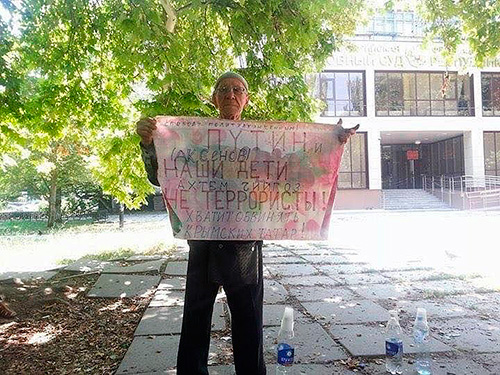 ВНЫЙ СУД РЕСПУБЛИ
ПУТИН и
(АКСЕНОВ)
НАШИ ДЕТИ
АХТЕМ ЧИЙГОЗ
НЕ ТЕРРОРИСТЫ!
ХВАТИТ ОБВИНЯТЬ
КРЫМСКИХ ТАТАР!